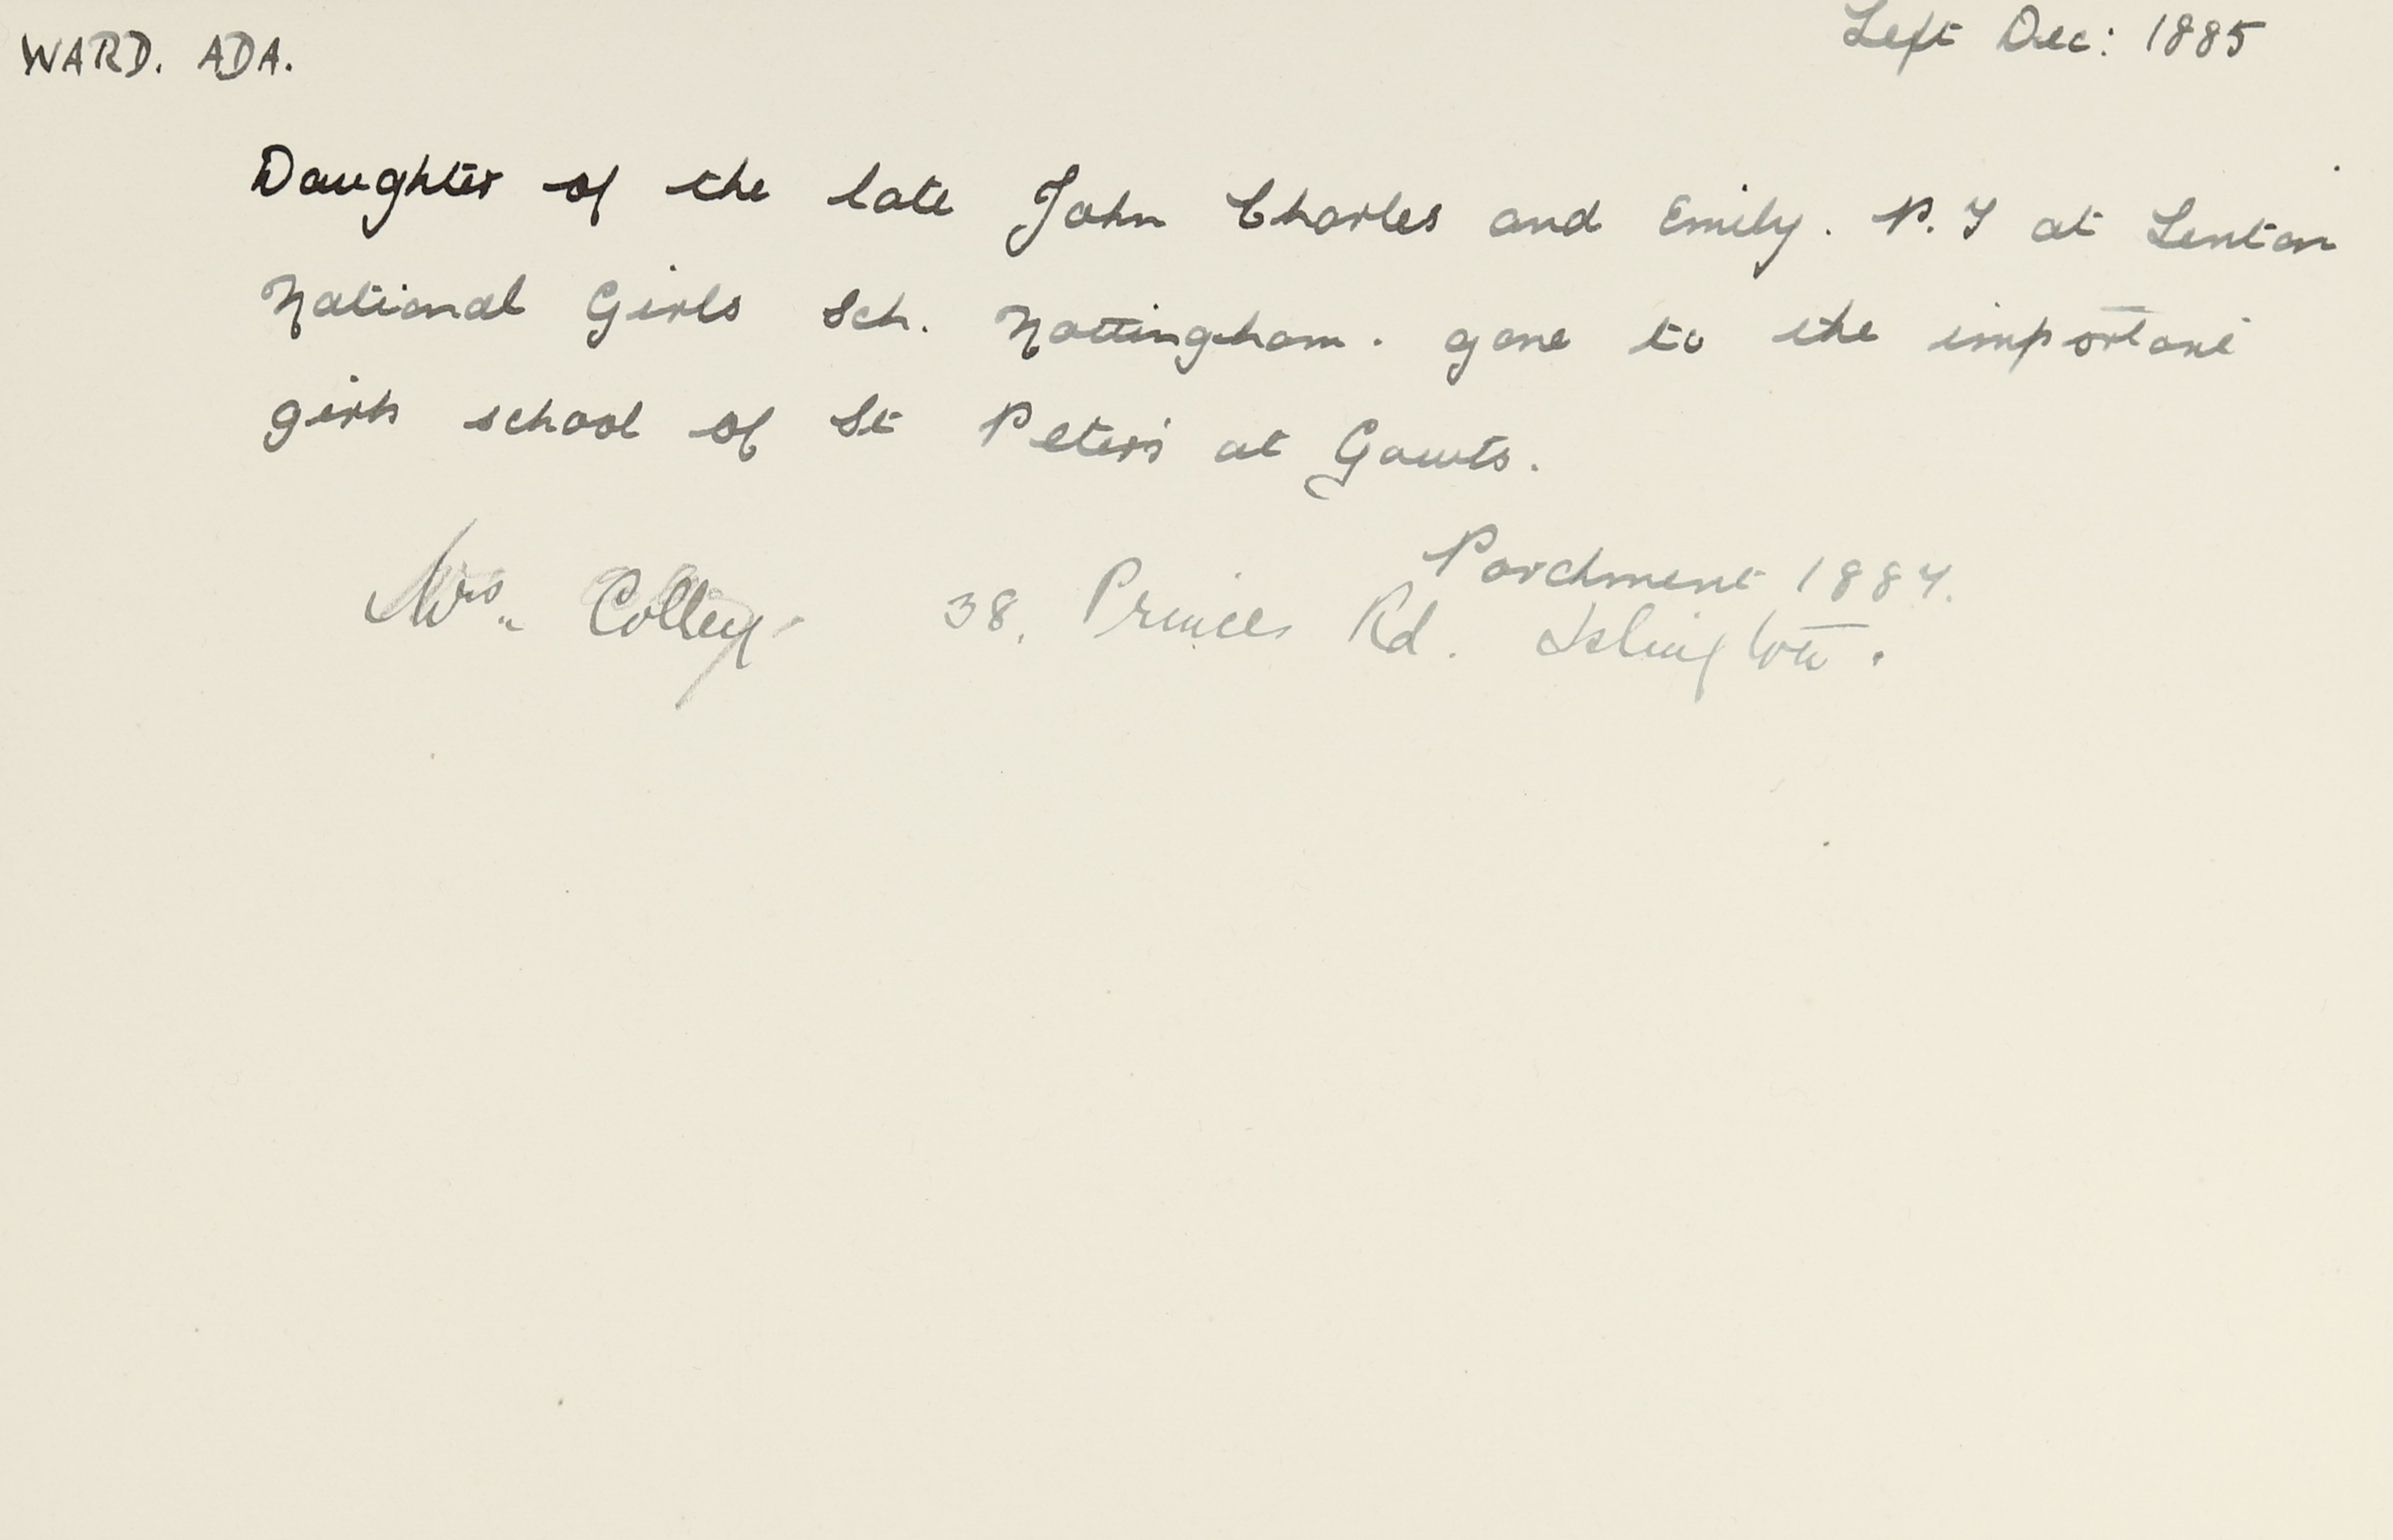 WARD. ADA.
Left Dec: 1885
Daughter of the late John Charles and Emily. P.T at Lenton
National Girls Sch. Nottingham. gone to the important
girls school of St Peter's at Gowts.
Parchment 1887.
Mrs. Colley 38, Princes Rd. Islington.